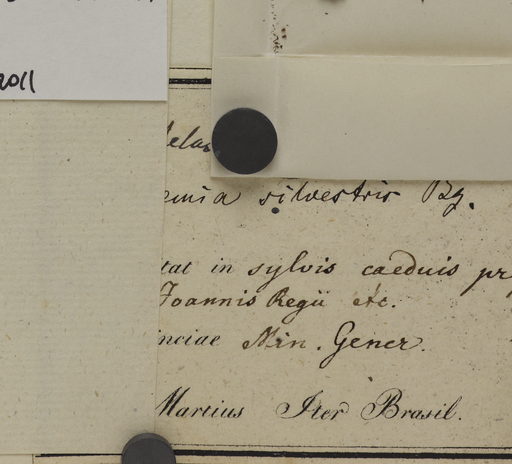 2011
emia silvestris Bg.
tat in sylvis caeduis pr
Joannis Regii etc.
nciae Min. Gener.
Martius Iter Brasil.